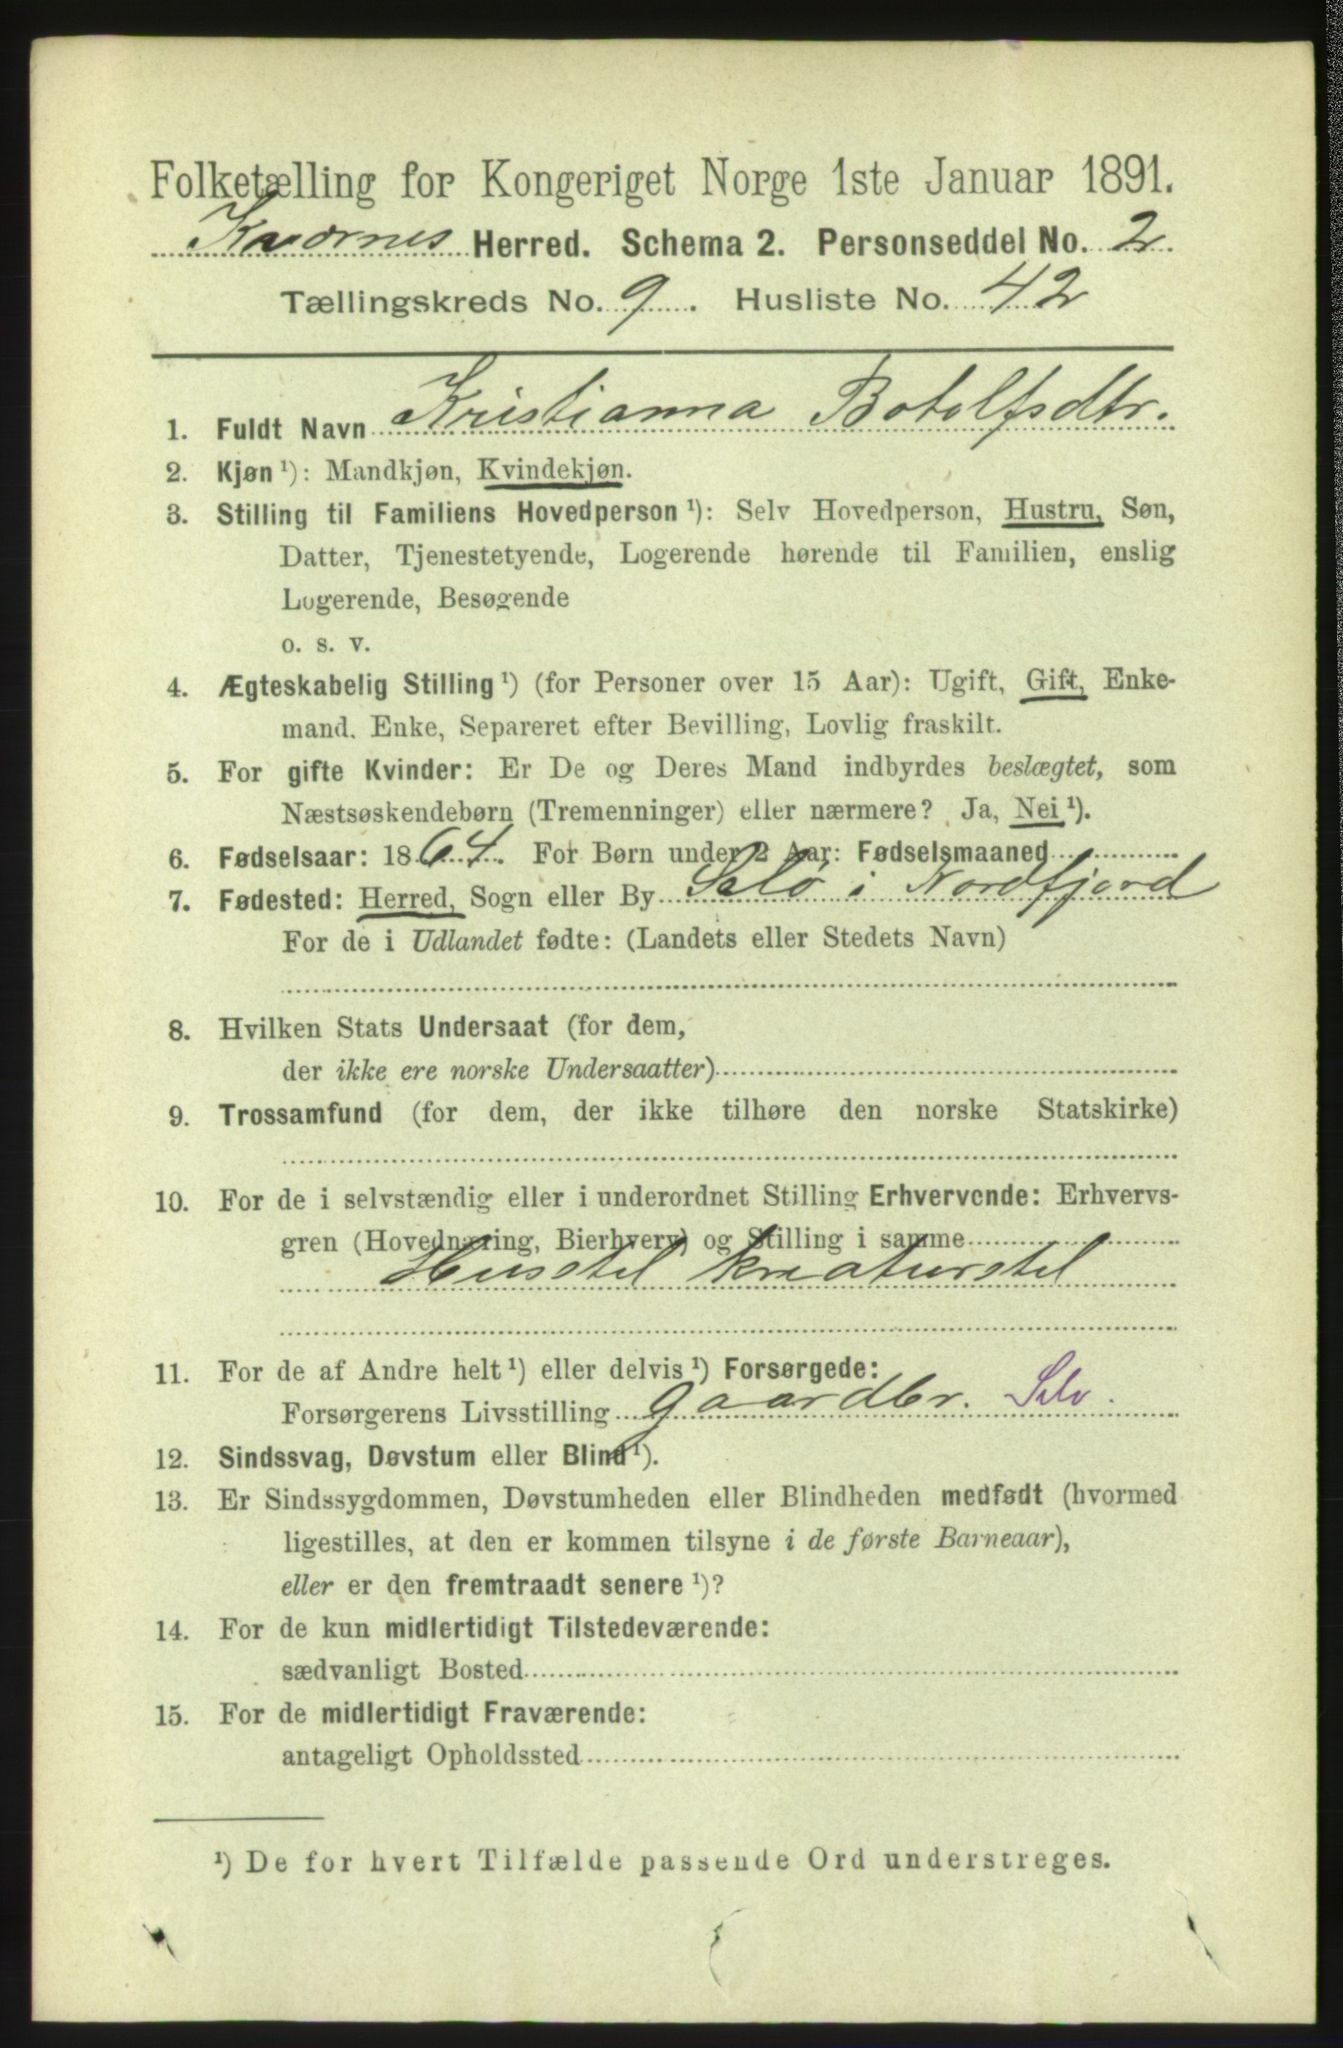 Folketælling for Kongeriget Norge 1ste Januar 1891.
Kvernes Herred. Schema 2. Personseddel No. 2
Tællingskreds No. 9. Husliste No. 42
1. Fuldt Navn Kristianna Botolfsdtr.
2. Kjøn ¹): Mandkjøn, Kvindekjøn.
3. Stilling til Familiens Hovedperson ¹): Selv Hovedperson, Hustru, Søn,
Datter, Tjenestetyende, Logerende hørende til Familien, enslig
Logerende, Besøgende
o. s. v.
4. Ægteskabelig Stilling ¹) (for Personer over 15 Aar): Ugift, Gift, Enke-
mand. Enke, Separeret efter Bevilling, Lovlig fraskilt.
5. For gifte Kvinder: Er De og Deres Mand indbyrdes beslægtet, som
Næstsøskendebørn (Tremenninger) eller nærmere? Ja, Nei ¹).
6. Fødselsaar: 1864. For Børn under 2 Aar: Fødselsmaaned
7. Fødested: Herred, Sogn eller By Selø i Nordfjord
For de i Udlandet fødte: (Landets eller Stedets Navn)
8. Hvilken Stats Undersaat (for dem,
der ikke ere norske Undersaatter)
9. Trossamfund (for dem, der ikke tilhøre den norske Statskirke)
10. For de i selvstændig eller i underordnet Stilling Erhvervende: Erhvervs-
gren (Hovednæring, Bierhverv) og Stilling i samme
Husstel kreaturstel
11. For de af Andre helt ¹) eller delvis ¹) Forsørgede:
Forsørgerens Livsstilling Gaardbr. Selv.
12. Sindssvag, Døvstum eller Blind ¹).
13. Er Sindssygdommen, Døvstumheden eller Blindheden medfødt (hvormed
ligestilles, at den er kommen tilsyne i de første Barneaar),
eller er den fremtraadt senere ¹)?
14. For de kun midlertidigt Tilstedeværende:
sædvanligt Bosted
15. For de midlertidigt Fraværende:
antageligt Opholdssted
¹) De for hvert Tilfælde passende Ord understreges.